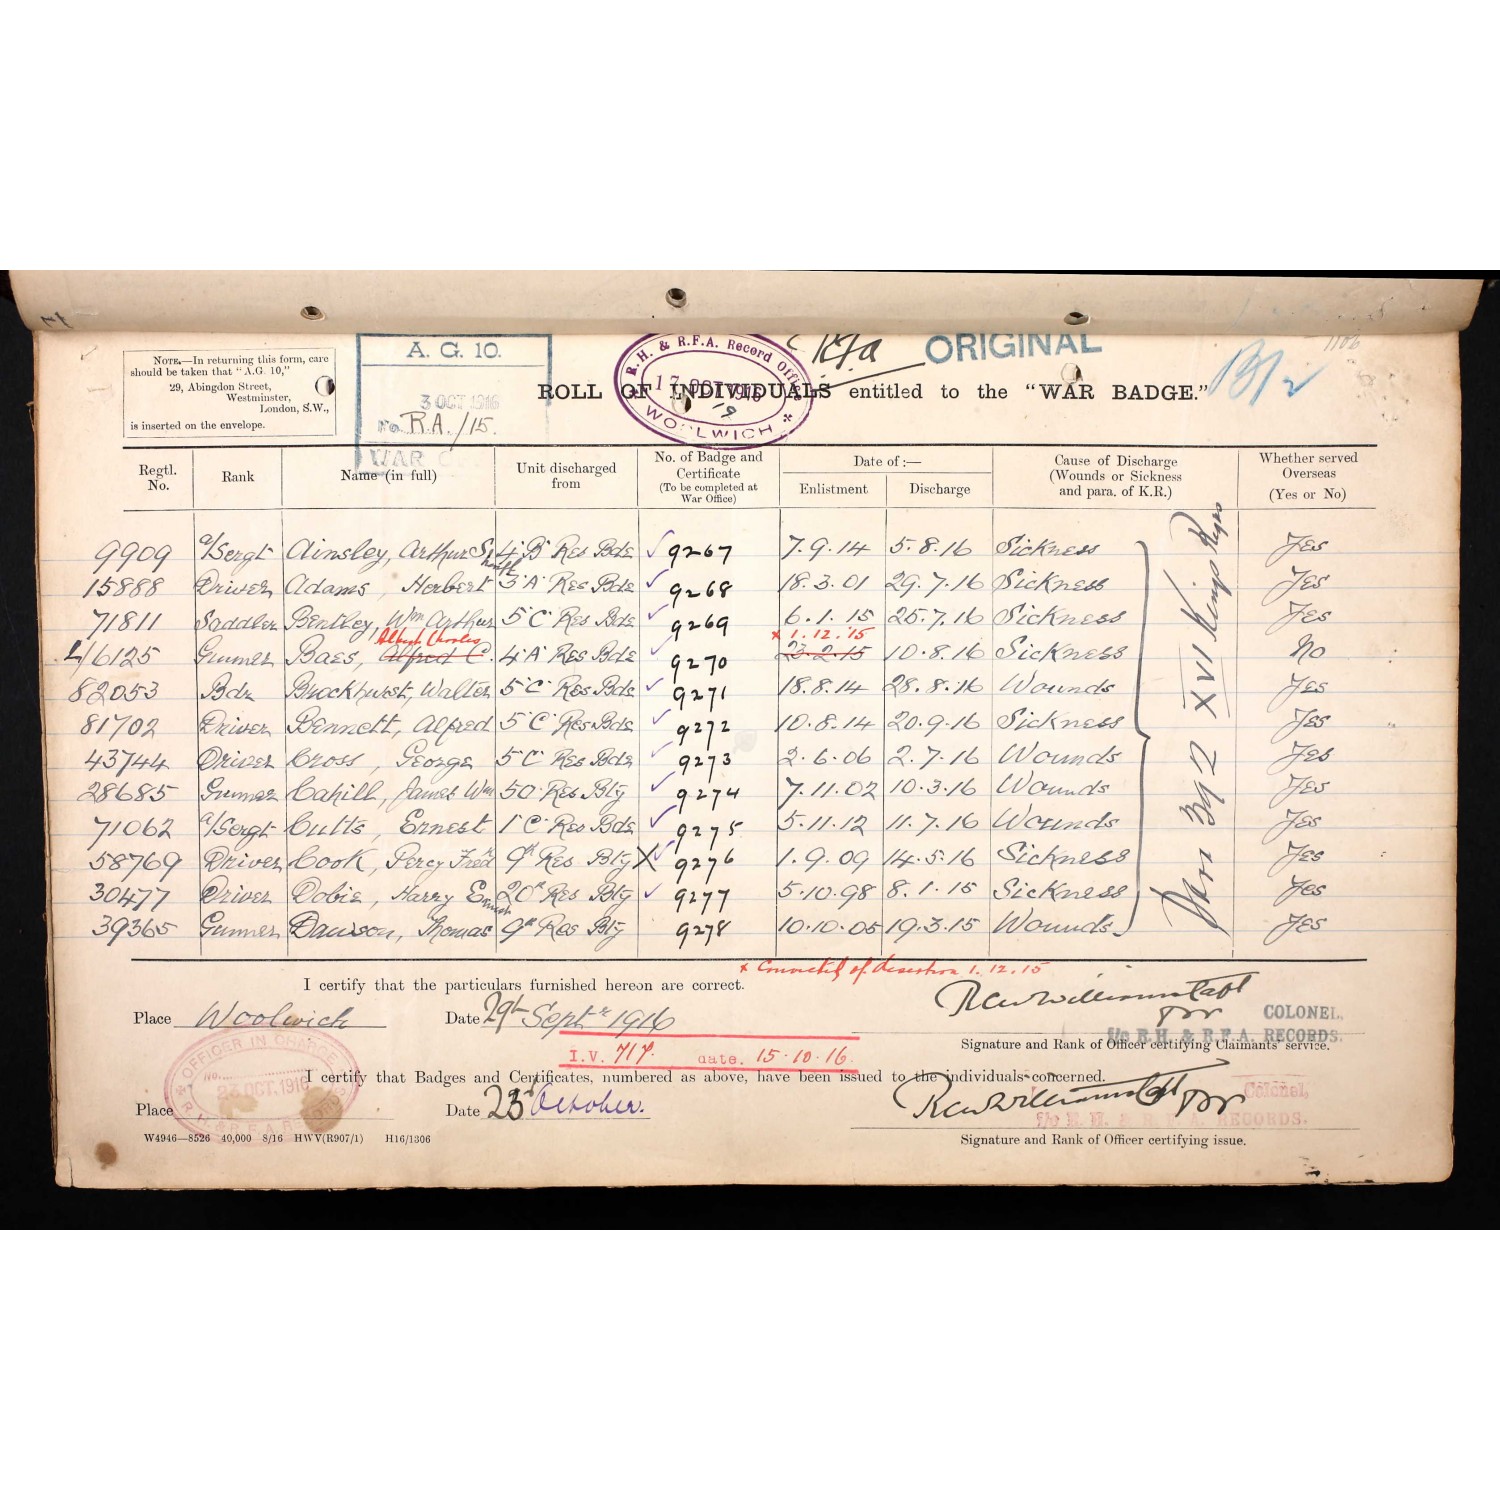 NOTE.—In returning this form, care
should be taken that "A.G. 10,"
29, Abingdon Street,
Westminster,
London, S.W.,
is inserted on the envelope.
A. G. 10.
3 OCT 1916
R.A./15.
WAR
R.H. & R.F.A. Record Office
17 OCT 1916
WOOLWICH
R.F.A
ORIGINAL
1106
ROLL OF INDIVIDUALS entitled to the "WAR BADGE."
Regtl. No. Rank Name (in full) Unit discharged from No. of Badge and Certificate (To be completed at War Office) Date of :— Enlistment Discharge Cause of Discharge (Wounds or Sickness and para. of K.R.) Whether served Overseas (Yes or No)
9909 a/Sergt Ainsley, Arthur Smith 4'B' Res Bde 9267 7.9.14 5.8.16 Sickness Yes
15888 Driver Adams, Herbert 3'A' Res Bde 9268 18.3.01 29.7.16 Sickness Yes
71811 Saddler Bentley, Wm Arthur 5'C' Res Bde 9269 6.1.15 25.7.16 Sickness Yes
Albert Charles x 1.12.15
L/6125 Gunner Baes, Alfred C. 4'A' Res Bde 9270 23.2.15 10.8.16 Sickness No
82053 Bdr Brockhurst, Walter 5'C' Res Bde 9271 18.8.14 28.8.16 Wounds Yes
81702 Driver Bennett, Alfred 5'C' Res Bde 9272 10.8.14 20.9.16 Sickness Yes
43744 Driver Cross, George 5'C' Res Bde 9273 2.6.06 2.7.16 Wounds Yes
28685 Gunner Cahill, James Wm 50 Res Bty 9274 7.11.02 10.3.16 Wounds Yes
71062 a/Sergt Cutts, Ernest 1'C' Res Bde 9275 5.11.12 11.7.16 Wounds Yes
58769 Driver Cook, Percy Fred 9th Res Bty X 9276 1.9.09 14.5.16 Sickness Yes
30477 Driver Dobie, Harry Ernest 20th Res Bty 9277 5.10.98 8.1.15 Sickness Yes
39365 Gunner Dawson, Thomas 9th Res Bty 9278 10.10.05 19.3.15 Wounds Yes
Para 392 XVII Kings Regs
x Convicted of desertion 1.12.15
I certify that the particulars furnished hereon are correct.
Place Woolwich Date 29th Septr 1916
RCW Williams Capt
for COLONEL.
i/c R.H. & R.F.A. RECORDS.
Signature and Rank of Officer certifying Claimants' service.
I.V. 717. date. 15.10.16.
OFFICER IN CHARGE
23 OCT. 1916
R.H. & R.F.A. RECORDS
I certify that Badges and Certificates, numbered as above, have been issued to the individuals concerned.
Place Date 23rd October.
RCW Williams Capt for
Colonel,
i/c R. H. & R.F.A. RECORDS.
W4946—8526 40,000 8/16 HWV(R907/1) H16/1306
Signature and Rank of Officer certifying issue.